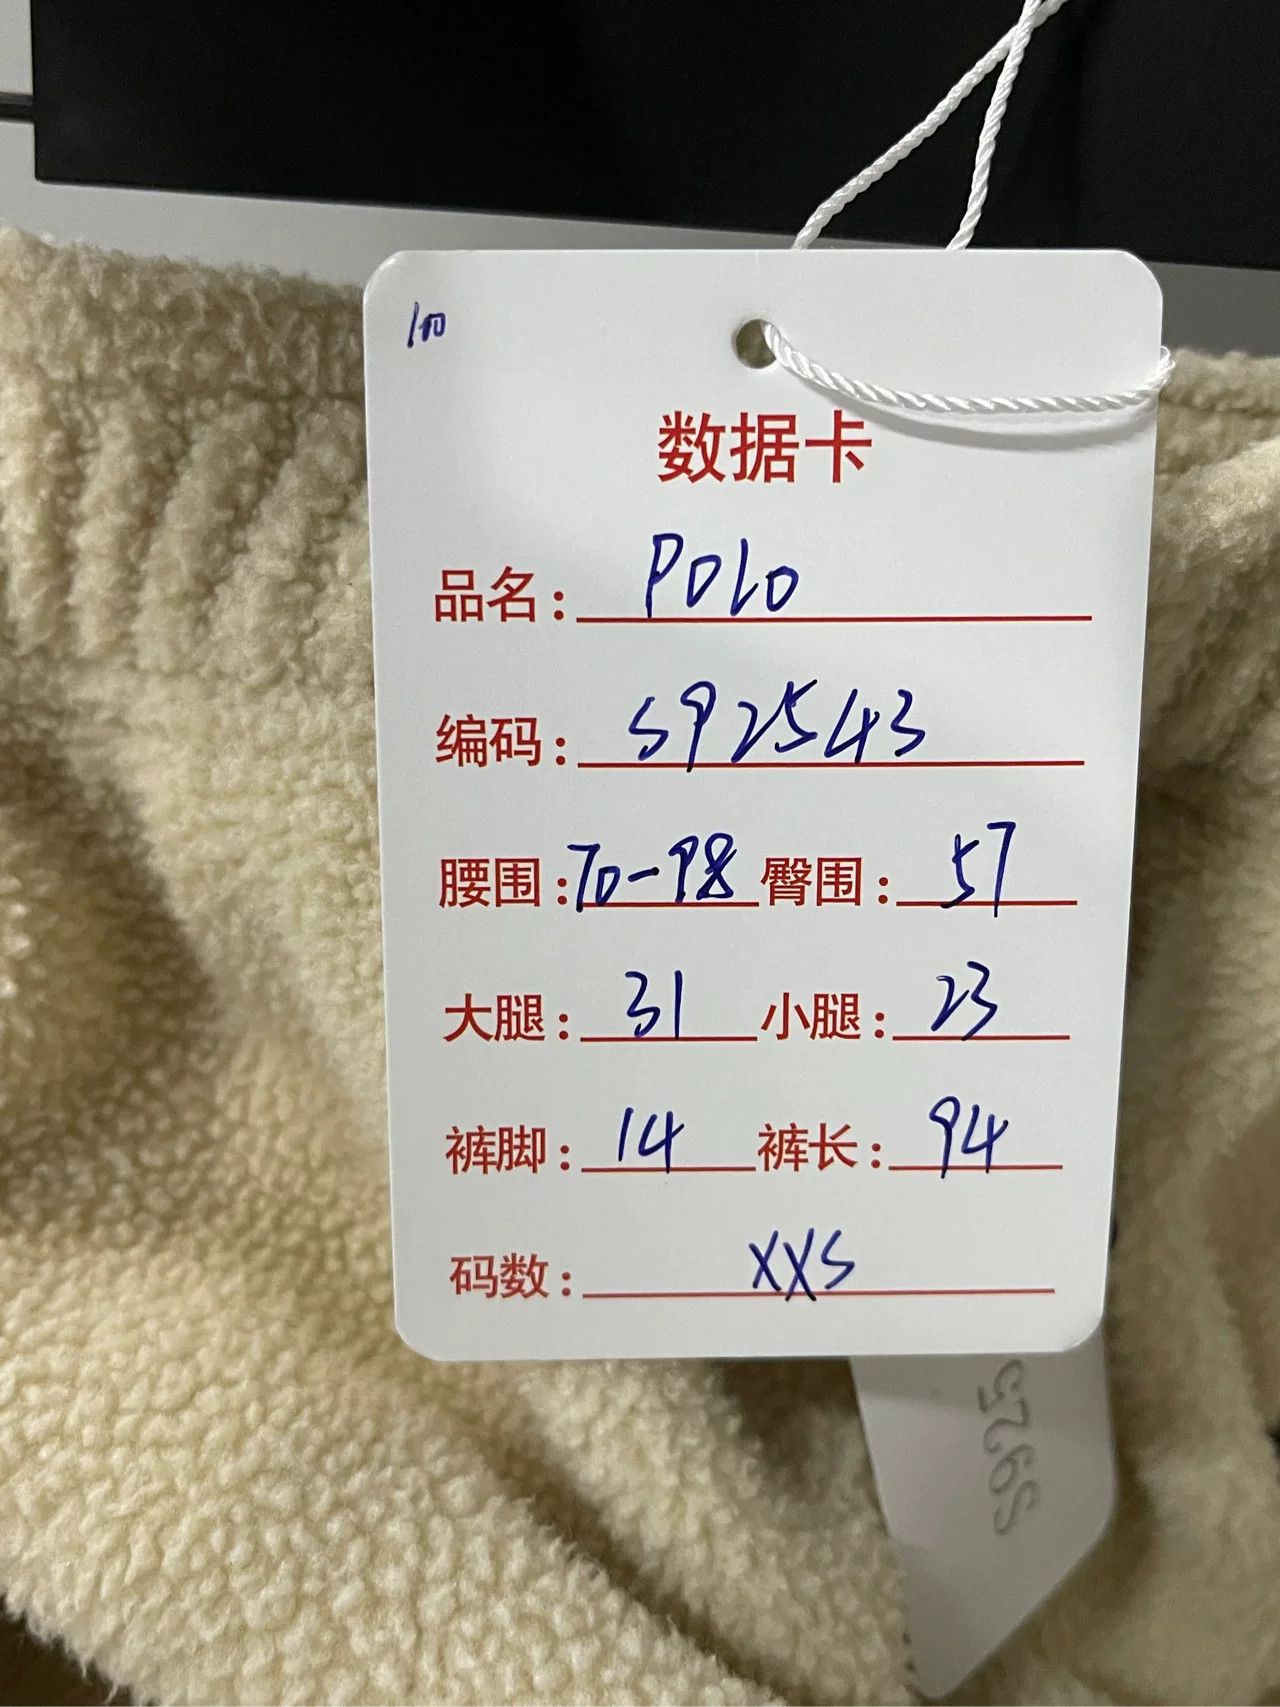 100
数据卡
品名: POLO
编码: S92543
腰围: 70-98 臀围: 57
大腿: 31 小腿: 23
裤脚: 14 裤长: 94
码数: XXS
S925